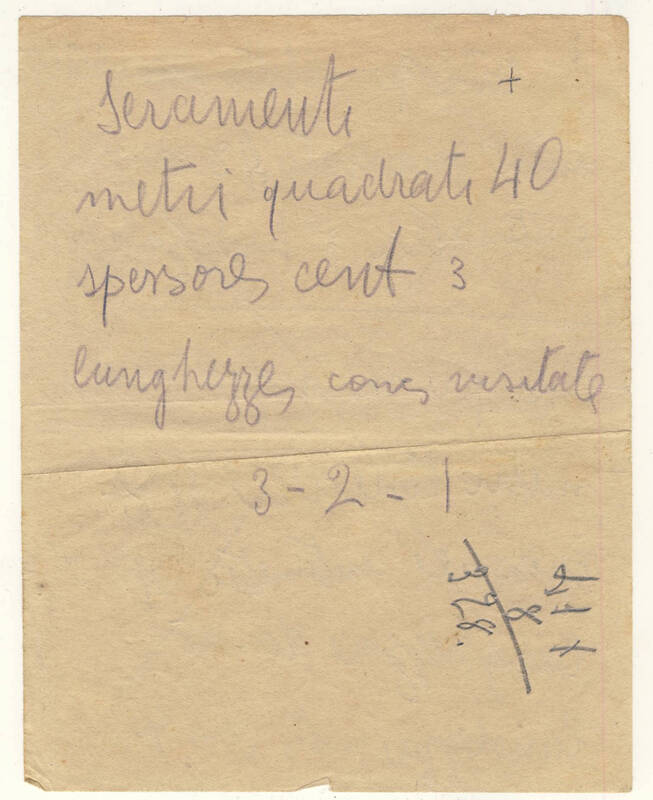 +
Seramenti
metri quadrati 40
spessore cent 3
lunghezze come visitate
3 - 2 - 1
8
328.